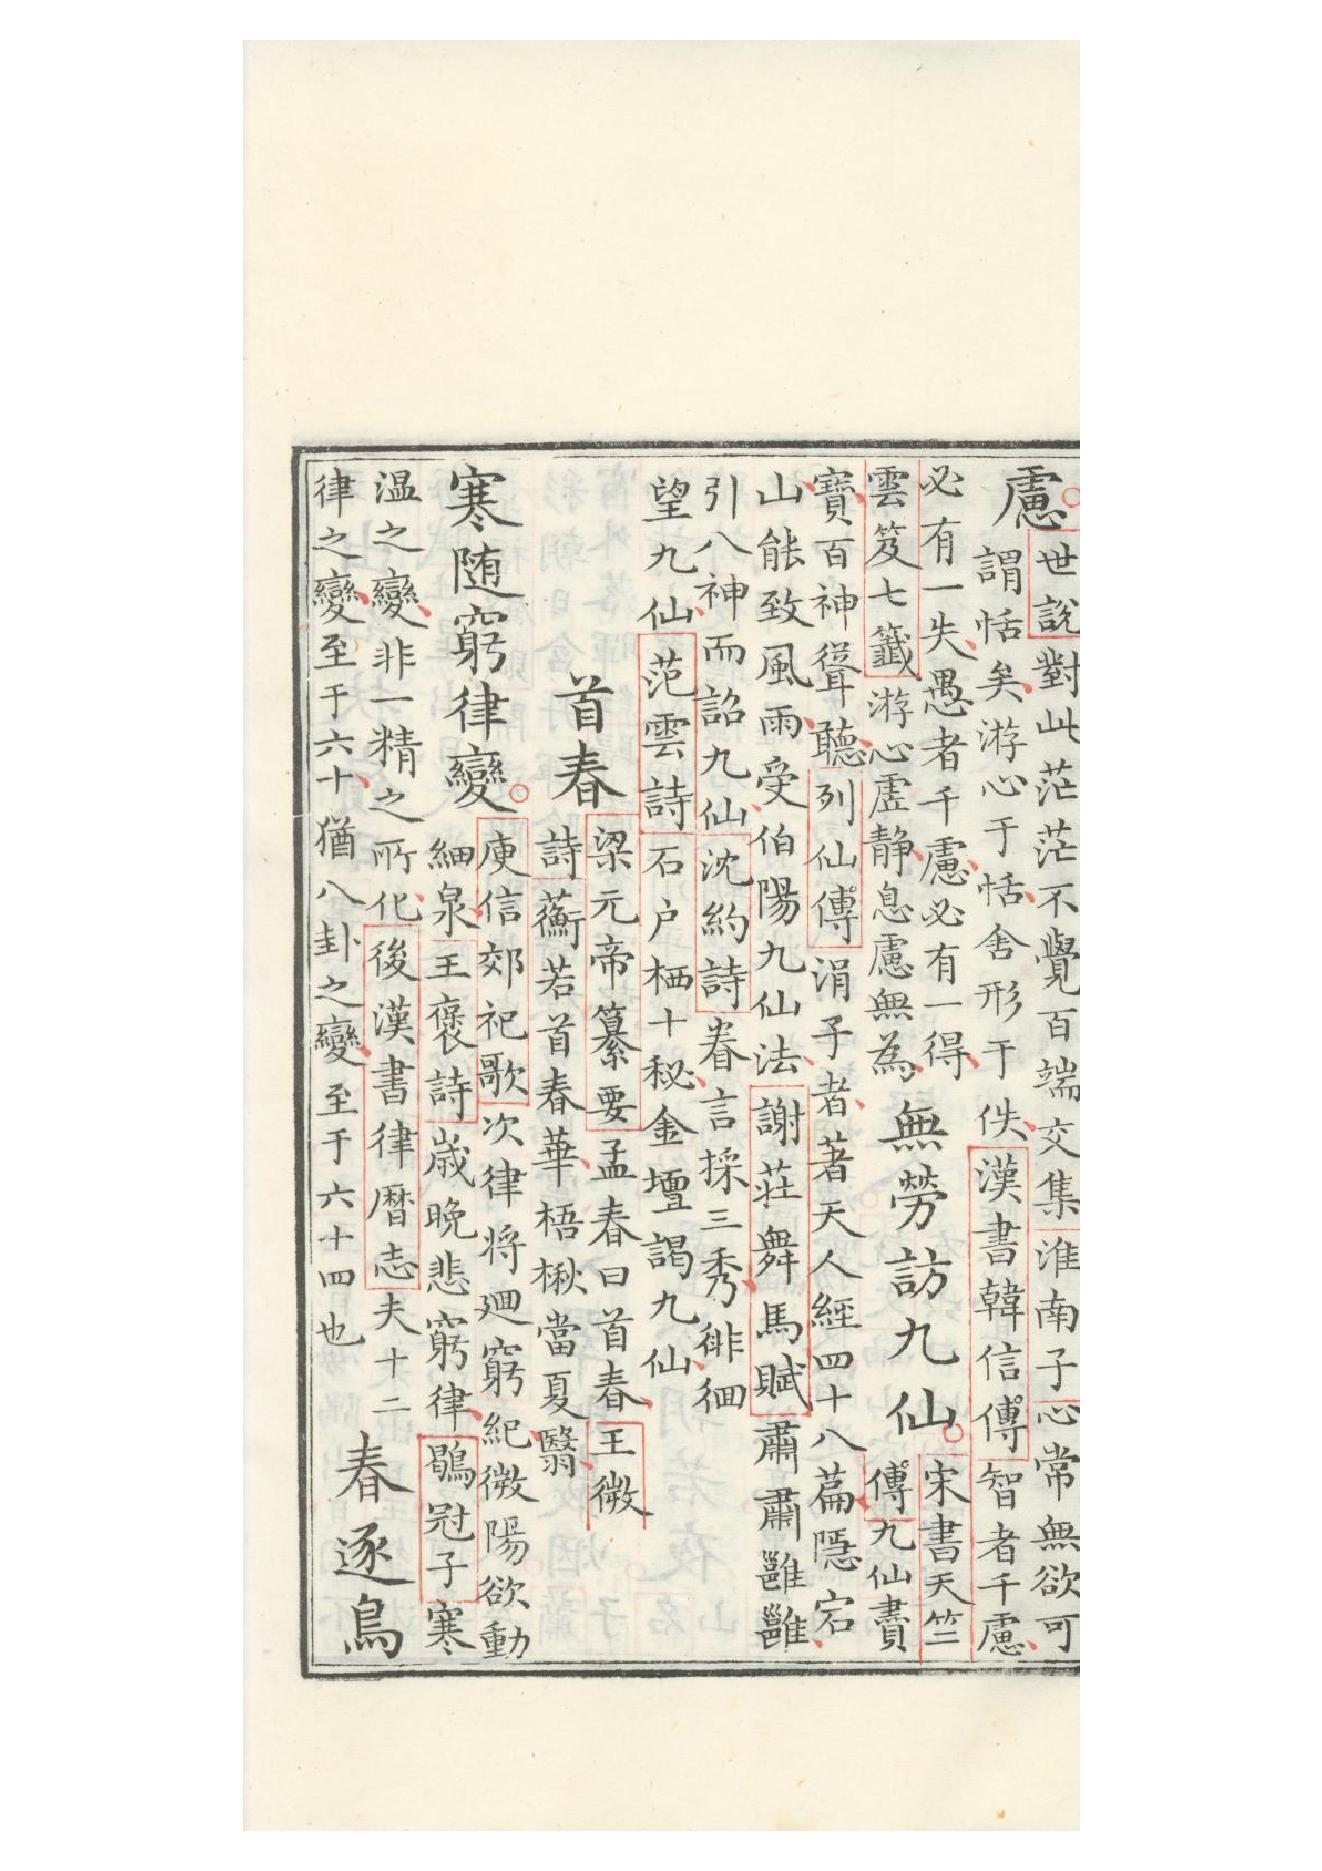 慮
世說對此茫茫不覺百端交集淮南子心常無欲可
謂恬矣游心于恬舍形于佚漢書韓信傳智者千慮
必有一失愚者千慮必有一得
雲笈七籤游心虛静息慮無為
無勞訪九仙
宋書天竺
傳九仙賮
寶百神聳聽列仙傳涓子者著天人經四十八篇隠宕
山能致風雨受伯陽九仙法謝莊舞馬賦肅肅雝雝
引八神而詔九仙沈約詩眷言採三秀徘徊
望九仙范雲詩石户栖十秘金壇謁九仙
首春
梁元帝纂要孟春曰首春王微
詩蘅若首春華梧楸當夏翳
寒随窮律變
庾信郊祀歌次律将廻窮紀微陽欲動
細泉王褒詩歳晚悲窮律鶡冠子寒
温之變非一精之所化後漢書律曆志夫十二
律之變至于六十猶八卦之變至于六十四也
春逐鳥